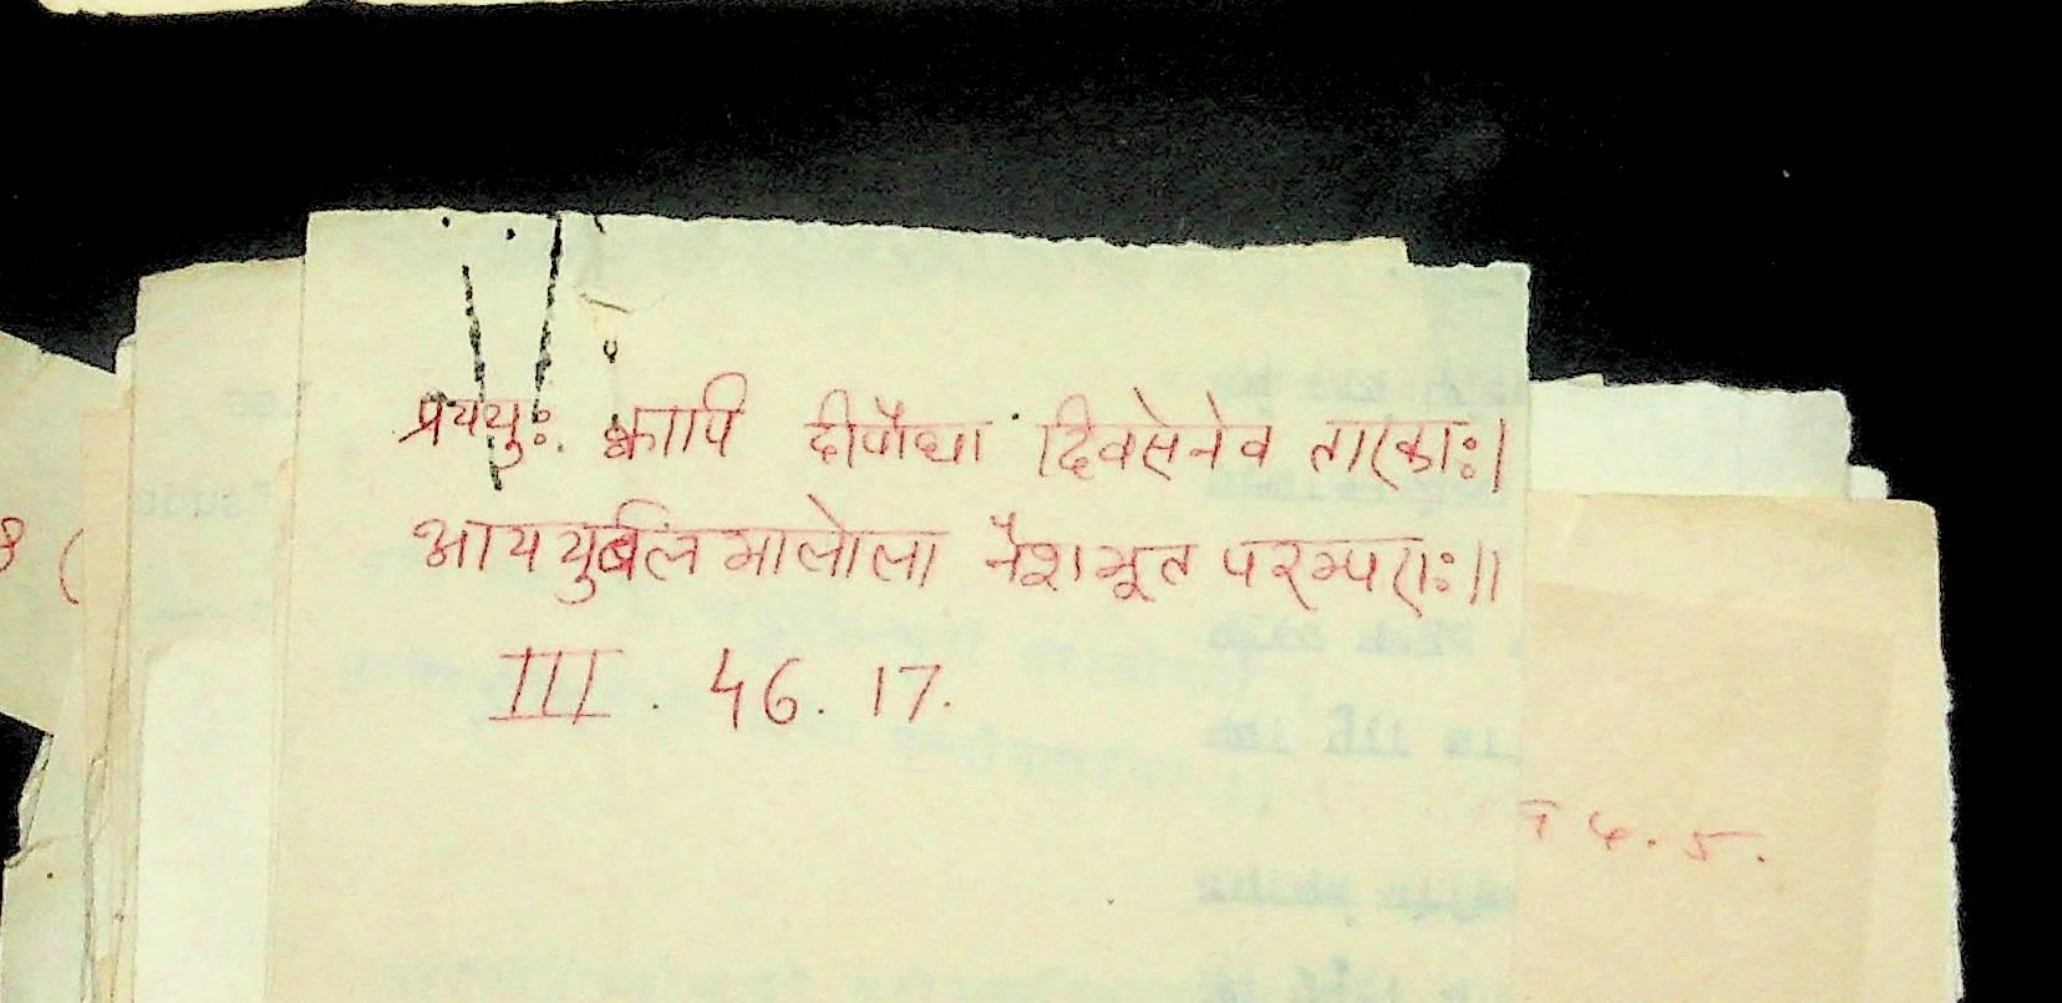 प्रययुः क्वापि दीपौघा दिवसेनेव तारकाः।
आययुर्बलिमालोला नैशभूत परम्पराः॥
III. 46. 17.
4.5.